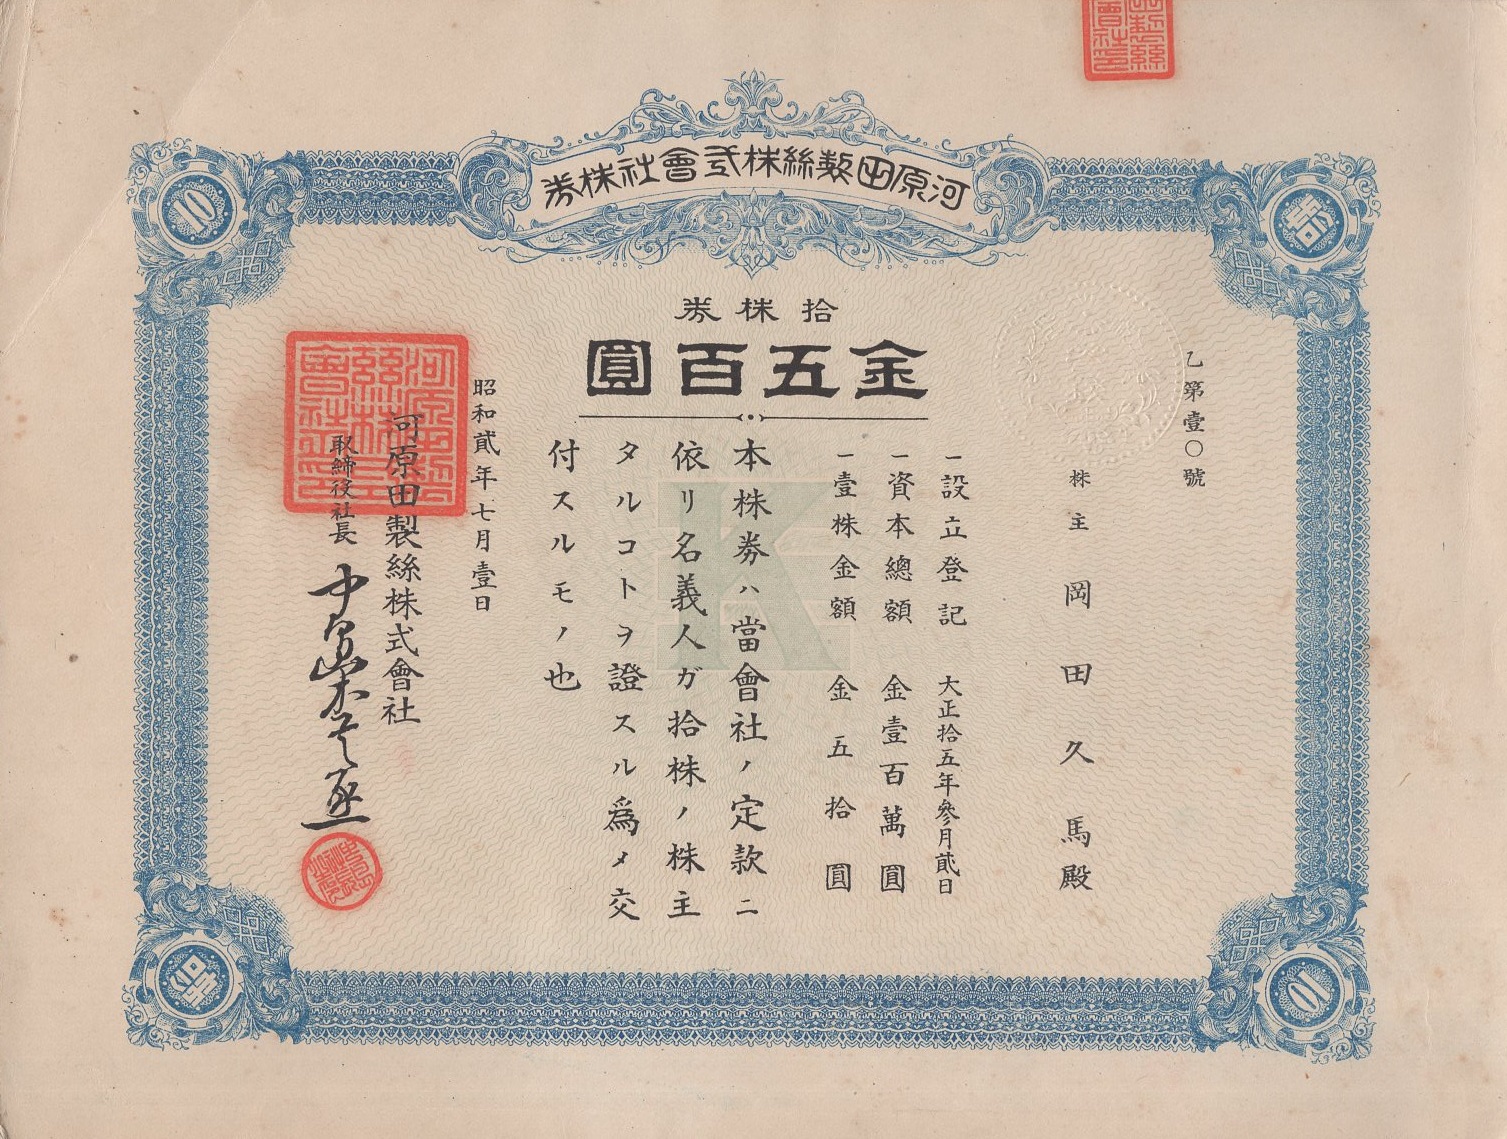 河原田製絲株式會社株券
拾株券
金五百圓
乙第壹〇號
株主 岡田久馬殿
一設立登記 大正拾五年參月貮日
一資本總額 金壹百萬圓
一壹株金額 金五拾圓
本株券ハ當會社ノ定款ニ
依リ名義人ガ拾株ノ株主
タルコトヲ證スル爲メ交
付スルモノ也
昭和貮年七月壹日
河原田製絲株式會社
取締役社長
10
10
K